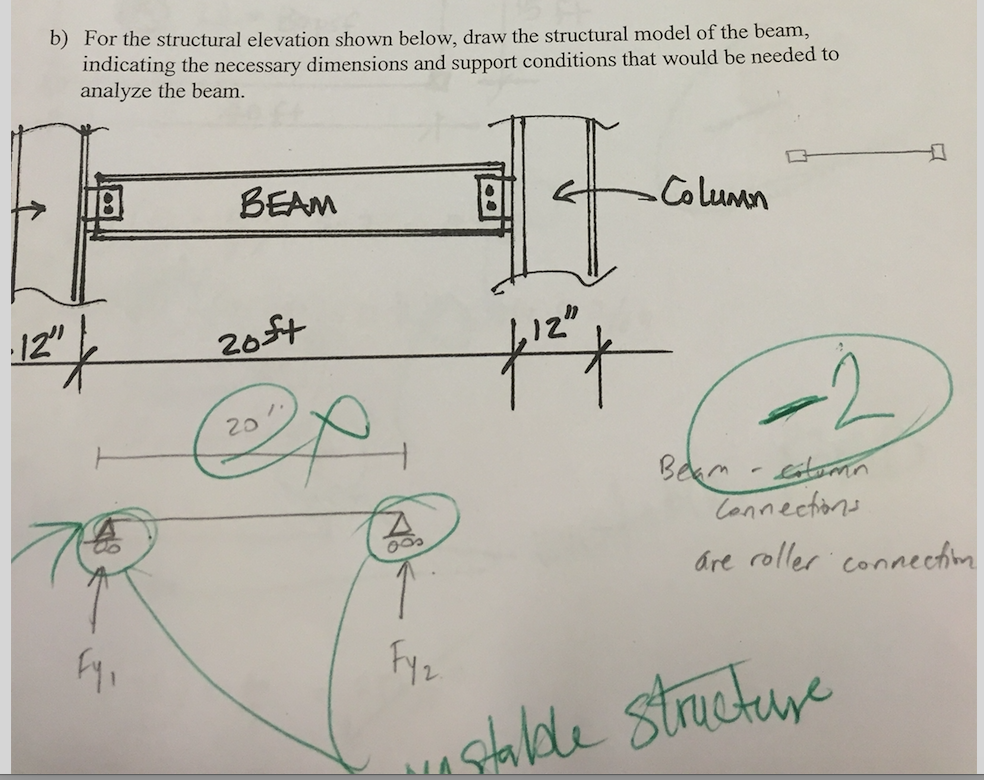 b) For the structural elevation shown below, draw the structural model of the beam,
indicating the necessary dimensions and support conditions that would be needed to
analyze the beam.
BEAM
Column
12"
20ft
12"
20"
-2
Beam - column
Connections
are roller connection
Fy1
Fy2
unstable structure